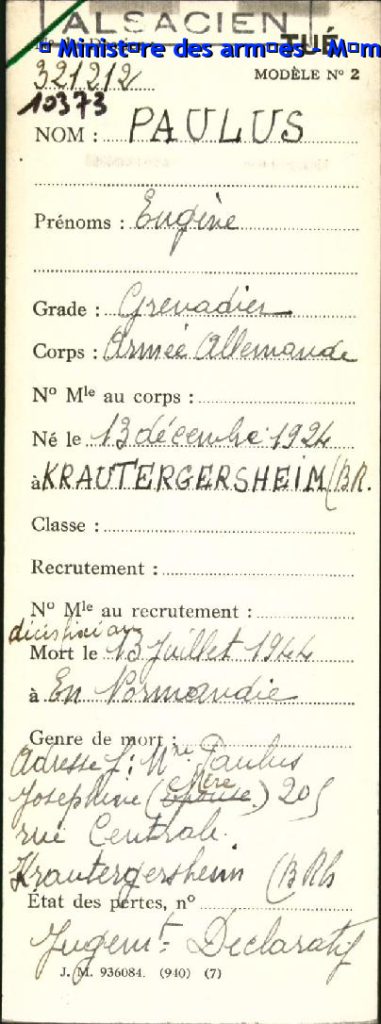 ALSACIEN
TUÉ
¤ Minist¤re des arm¤es - M¤m
321212
MODÈLE N° 2
10373
NOM : PAULUS
Prénoms : Eugène
Grade : Grenadier
Corps : Armée Allemande
N° Mle au corps :
Né le 13 décembre 1924
à KRAUTERGERSHEIM (BR.
Classe :
Recrutement :
N° Mle au recrutement :
Mort le 13 Juillet 1944
à En Normandie
Genre de mort :
Adresse f: Paulus
Joséphine (Epouse Mère) 205
rue Centrale.
Krautergersheim (B Rh
État des pertes, n°
Jugemt- Déclaratif
J. M. 936084. (940) (7)